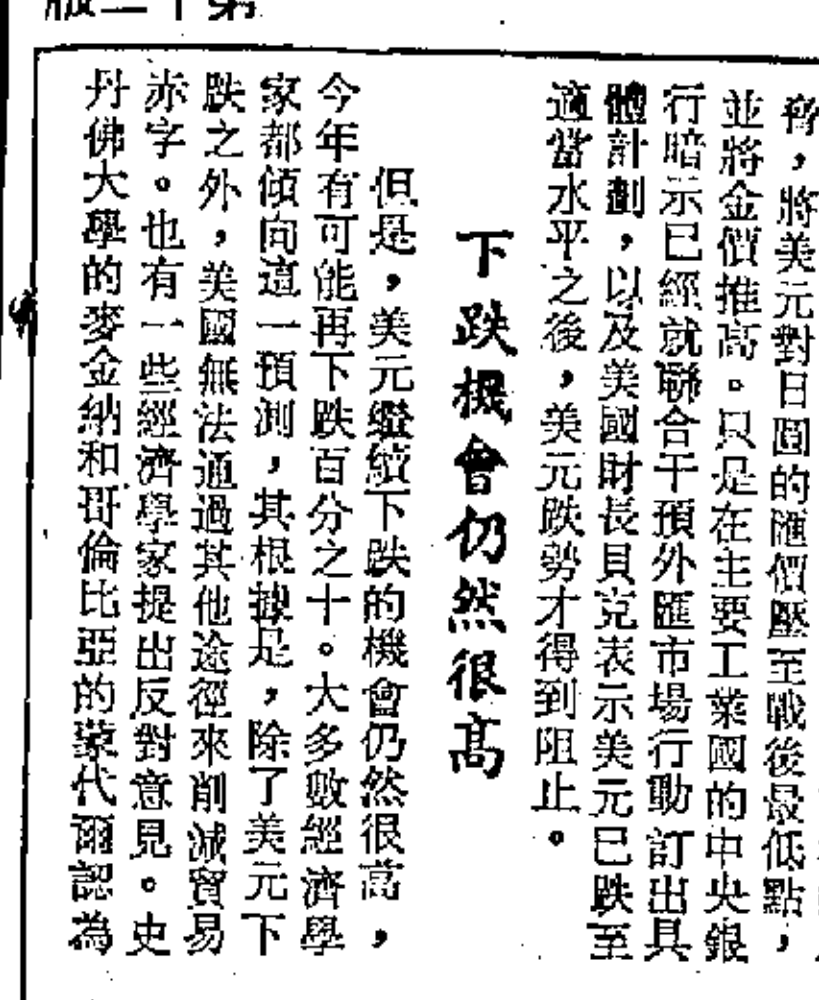 第十二版
將美元對日圓的匯價壓至戰後最低點，
並將金價推高。只是在主要工業國的中央銀
行暗示已經就聯合干預外匯市場行動訂出具
體計劃，以及美國財長貝克表示美元已跌至
適當水平之後，美元跌勢才得到阻止。
下跌機會仍然很高
但是，美元繼續下跌的機會仍然很高，
今年有可能再下跌百分之十。大多數經濟學
家都傾向這一預測，其根據是，除了美元下
跌之外，美國無法通過其他途徑來削減貿易
赤字。也有一些經濟學家提出反對意見。史
丹佛大學的麥金納和哥倫比亞的蒙代爾認為